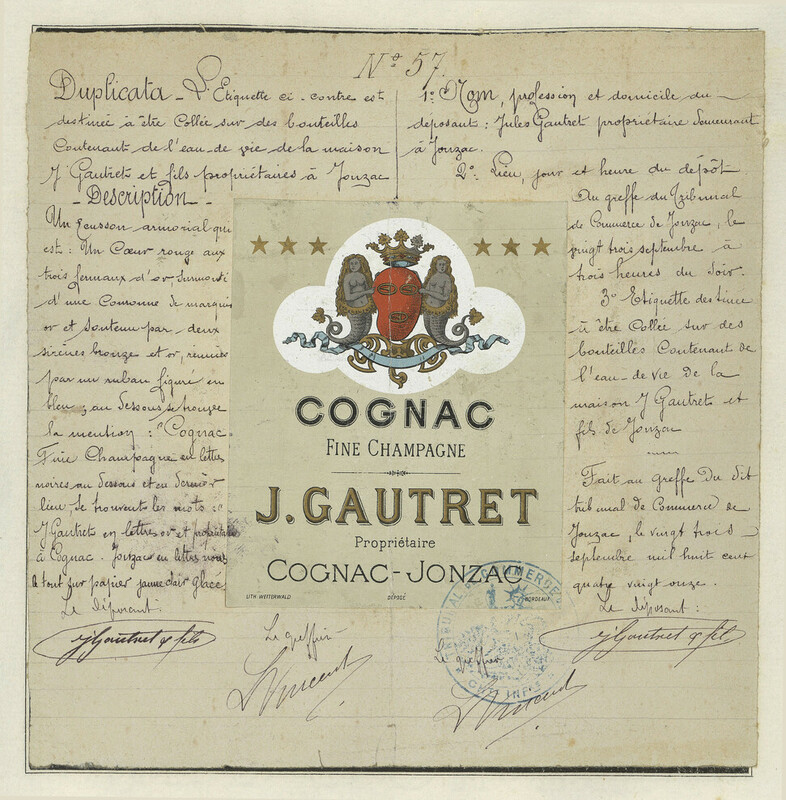 N° 57.
Duplicata _ L'Etiquette ci-contre est
destinée à être Collée sur des bouteilles
Contenant de l'eau-de vie de la maison
J Gautret et fils propriétaires à Jonzac
- Description -
Un Ecusson armorial qui
est : Un Cœur rouge aux
trois fermaux d'or surmonté
d'une Couronne de marquis
or et soutenu par deux
sirènes bronze et or, réunies
par un ruban figuré en
bleu ; au dessous se trouve
la mention : "Cognac
Fine Champagne en lettres
noires au dessous et en dernier
lieu, se trouvent les mots :
J Gautret en lettres or et propriétaire
à Cognac. Jonzac en lettres noires
le tout sur papier jaune clair glacé
Le déposant :
J Gautret & fils
Le greffier
1° Nom, profession et domicile du
déposant : Jules Gautret propriétaire demeurant
à Jonzac.
2° Lieu, jour et heure du dépôt
Au greffe du Tribunal
de Commerce de Jonzac, le
vingt trois septembre à
trois heures du soir.
3° Etiquette destinée
à être Collée sur des
bouteilles Contenant de
l'eau-de vie de la
maison J Gautret et
fils de Jonzac
Fait au greffe du dit
tribunal de Commerce de
Jonzac, le vingt trois
septembre mil huit cent
quatre vingt onze.
Le déposant :
J Gautret & fils
Le greffier
COGNAC
FINE CHAMPAGNE
J. GAUTRET
Propriétaire
COGNAC-JONZAC
LITH. WETTERWALD DÉPOSÉ BORDEAUX
TRIBUNAL DE COMMERCE